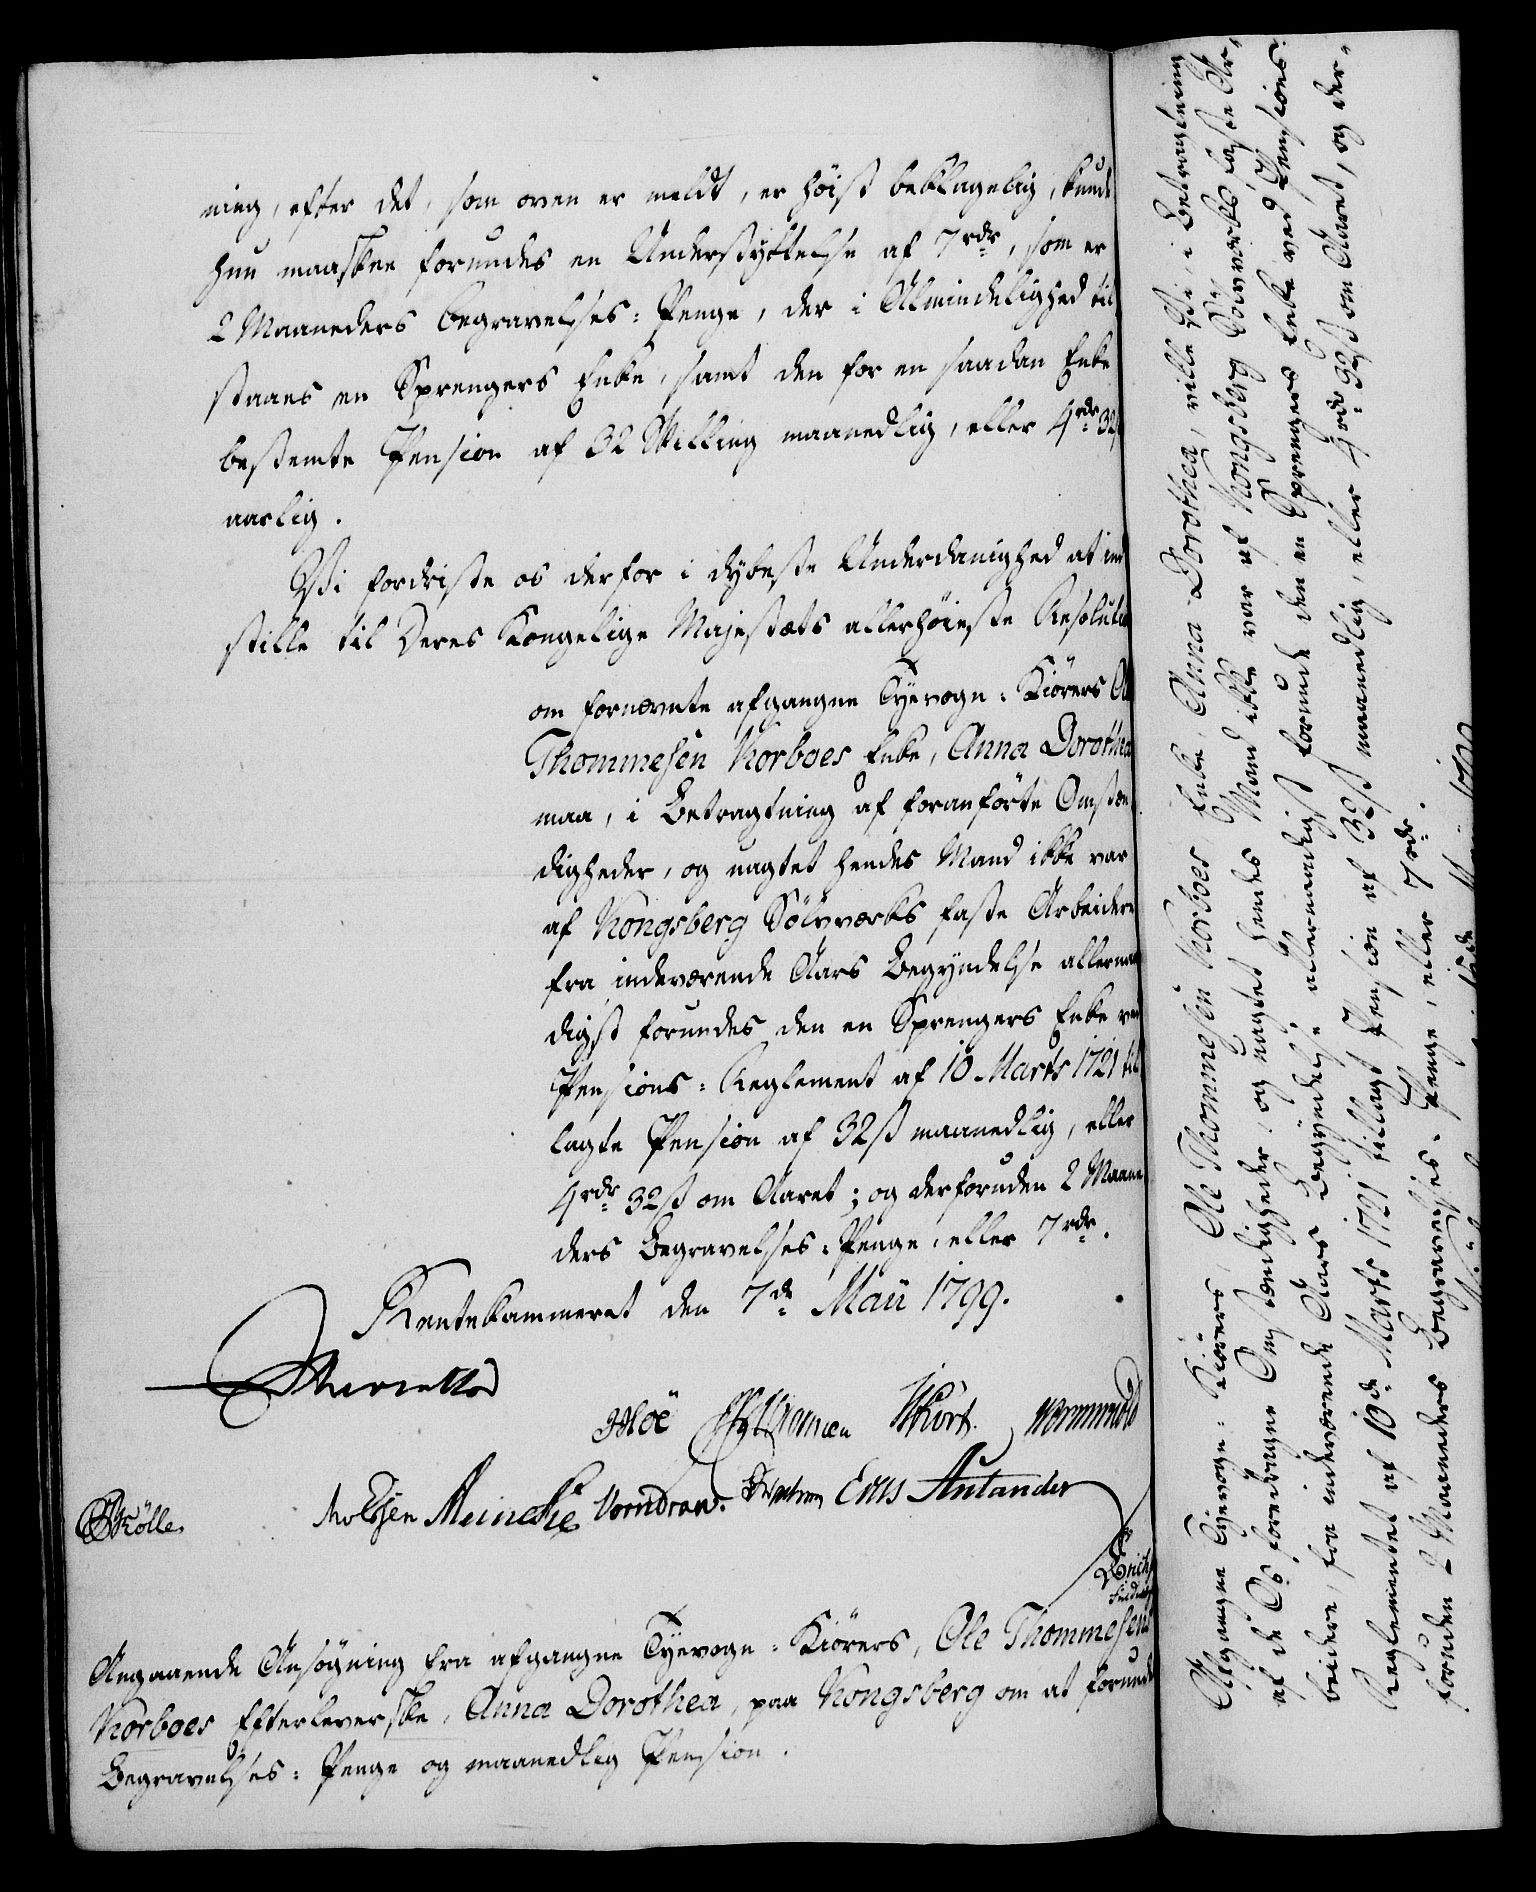 ning, efter det, som oven er meldt, er høist beklagelig, kunde
hun maaskee forundes en Understyttelse af 7 rdr, som er
2 Maaneders Begravelses-Penge, der i Almindelighed til
staaes en Sprengers Enke, samt den for en saadan Enke
bestemte Pension af 32 Skilling maanedlig, eller 4 rdr 32
aarlig.
Vi fordriste os derfor i dybeste Underdanighed at ind
stille til Deres Kongelige Majestæts allerhøieste Resolution
om fornævnte afgangne Tyevogn-Kiörers Ole
Thommesen Korboes Enke, Anna Dorothea
maa, i Betragtning af foranförte Omstæn
digheder, og uagtet hendes Mand ikke var
af Kongsberg Sölvværks faste Arbeidere
fra indeværende Aars Begyndelse allernaa
digst forundes den en Sprengers Enke ved
Pensions-Reglement af 10 Marts 1721 til
lagte Pension af 32 ß maanedlig, eller
4 rdr 32 ß om Aaret; og derforuden 2 Maane
ders Begravelses-Penge, eller 7 rdr.
Rentekammeret den 7de Maii 1799.
Wormskiold
Kölle. Meincke Vorndran. Enis Autander
Angaaende Ansögning fra afgangne Tyevogn-Kiörers, Ole Thommesens
Korboes Efterleverske, Anna Dorothea, paa Kongsberg om at forunde
Begravelses-Penge og maanedlig Pension.
Afgangne Tyevogn-Kiörers, Ole Thommesen Korboes Enke, Anna Dorothea, ville Vi, i Betragtning
af de Os foredragne Omstændigheder, og uagtet hendes Mand ikke var af Kongsberg Sölvværks faste Ar-
beidere, fra indeværende Aars Begyndelse allernaadigst forunde den en Sprengers Enke ved Pensions
Reglementet af 10de Marts 1721 tillagt Pension af 32 ß maanedlig, eller 4 rdr 32 ß om Aaret, og der-
foruden 2 Maaneders Begravelses-Penge, eller 7 rdr.